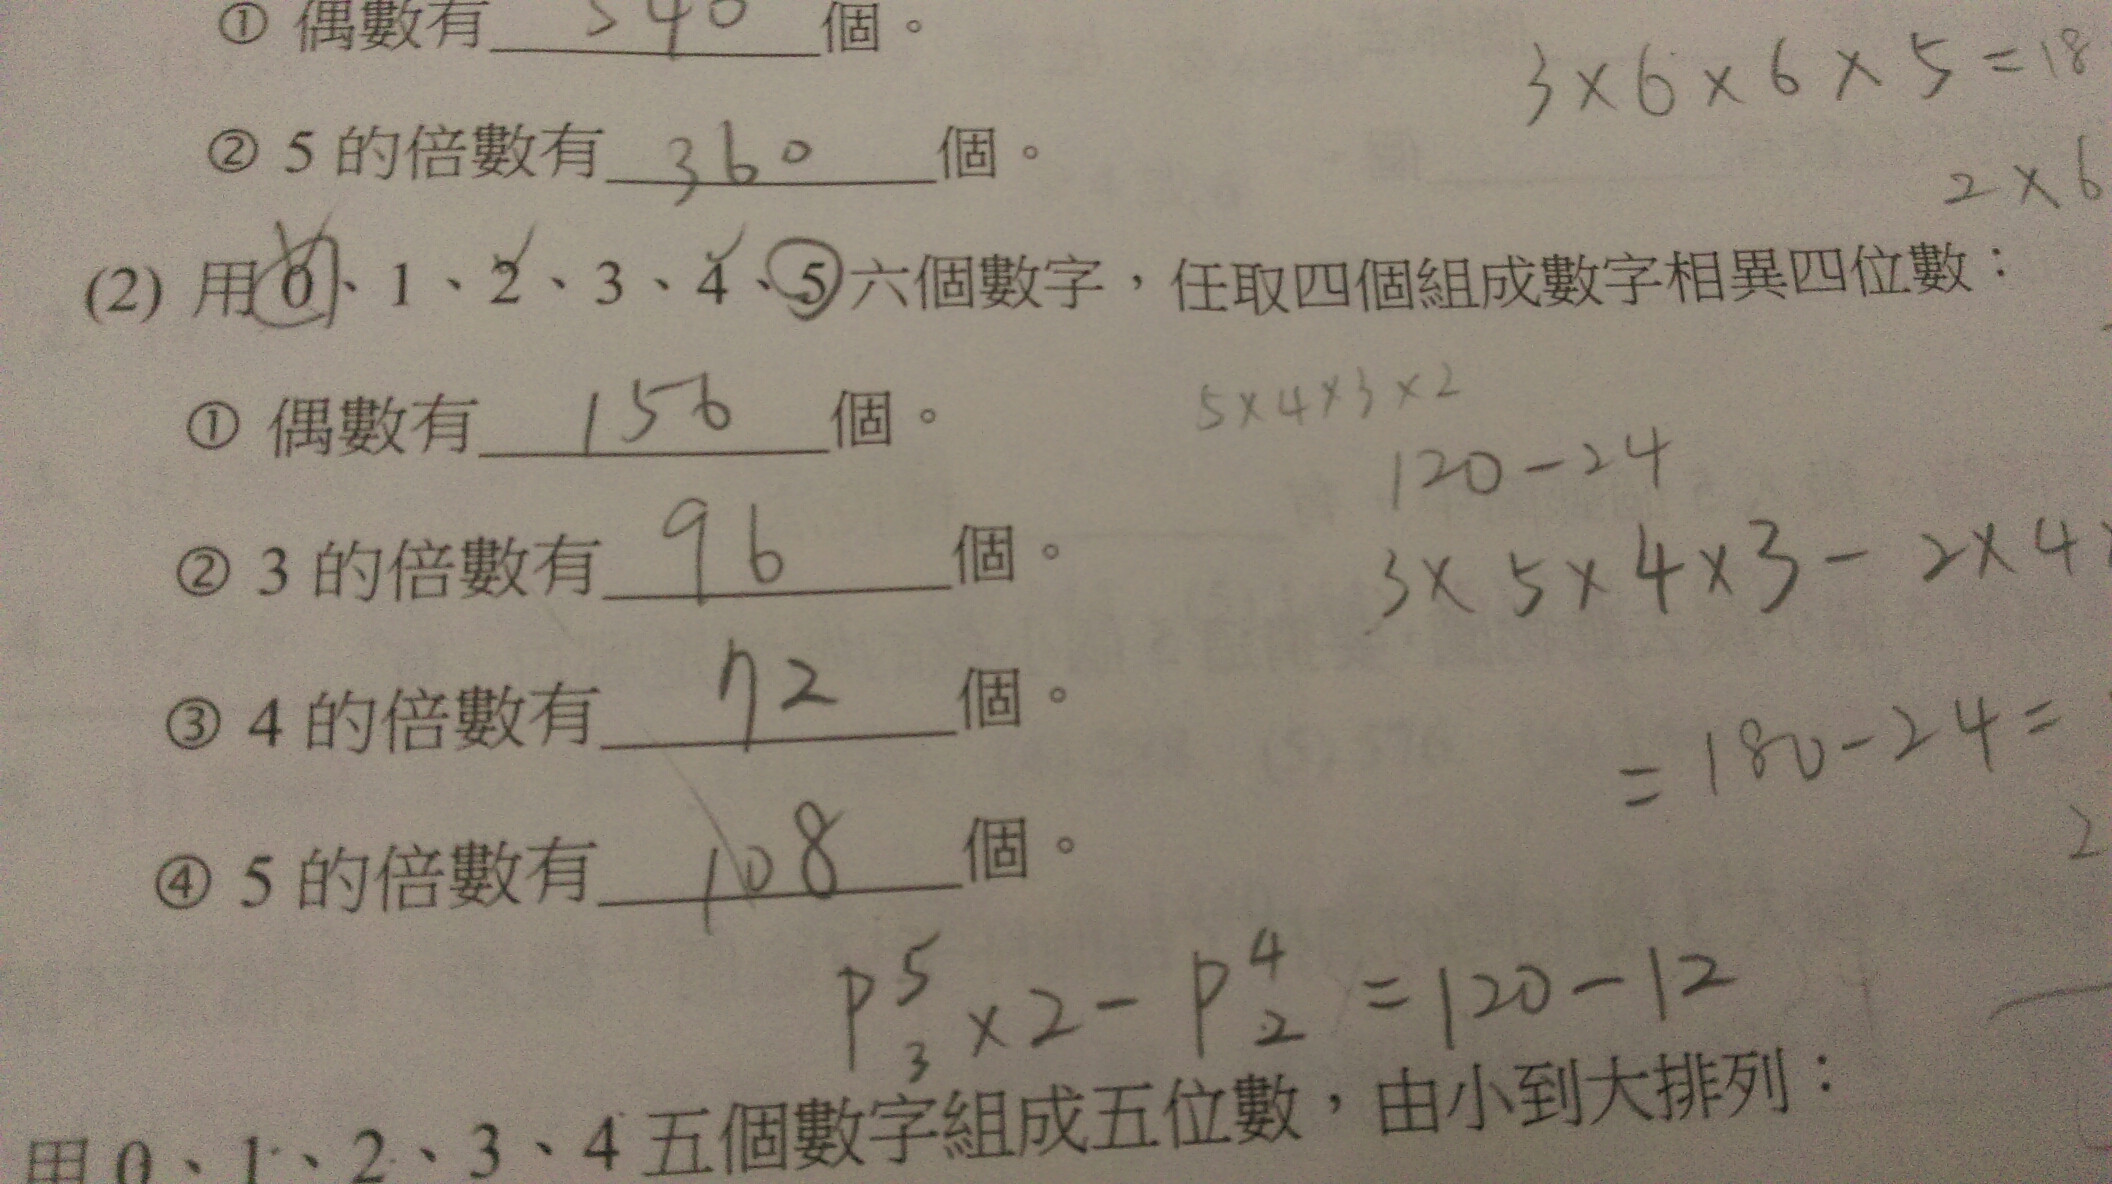 ① 偶數有 540 個。
3×6×6×5=18
② 5 的倍數有 360 個。
2×6
(2) 用 0、1、2、3、4、5 六個數字，任取四個組成數字相異四位數：
① 偶數有 156 個。
5×4×3×2
120-24
② 3 的倍數有 96 個。
3×5×4×3-2×4
③ 4 的倍數有 72 個。
=180-24=
④ 5 的倍數有 108 個。
2
P⁵₃×2-P⁴₂=120-12
用 0、1、2、3、4 五個數字組成五位數，由小到大排列：